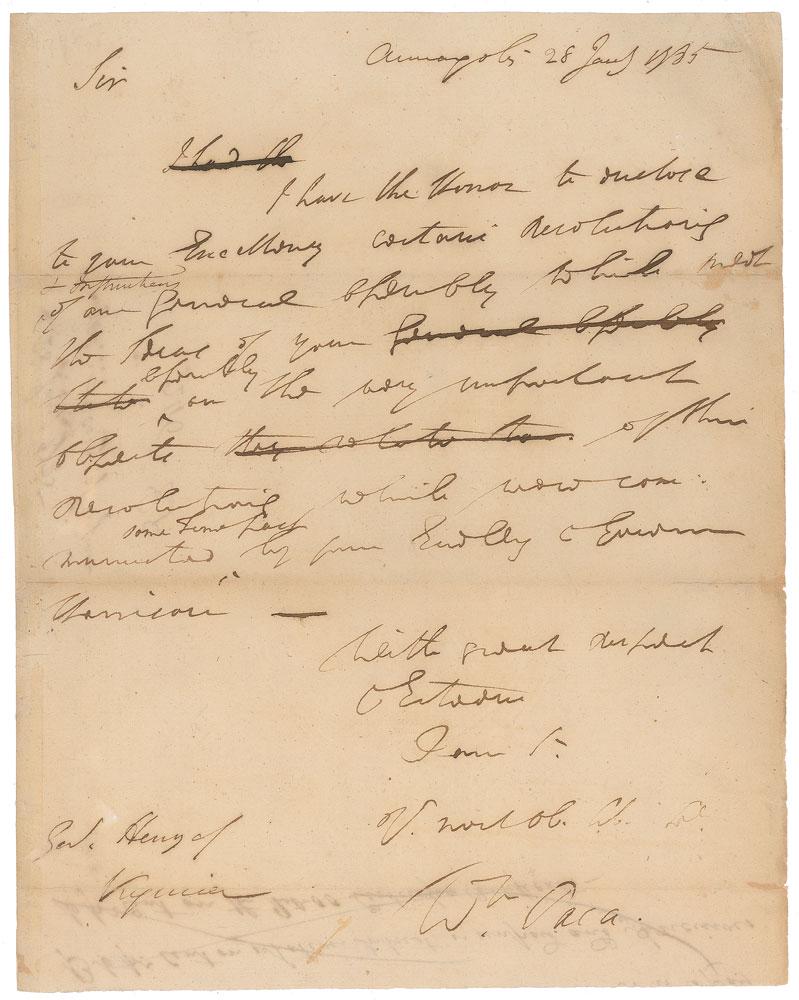 Annapolis 28 Jany 1785
Sir
I had the
I have the Honor to enclose
to your Excellency certain Resolutions
& Instructions
of our General Assembly which meet
the Ideas of your General Assembly
State Assembly on the very important
objects they relate to of their
resolutions which were com:
some Time past
municated by your Excellency Governor
Harrison —
With great respect
& Esteem
I am Sr.
Yr. most ob.
Govr. Henry of
Virginia
Wm. Paca.